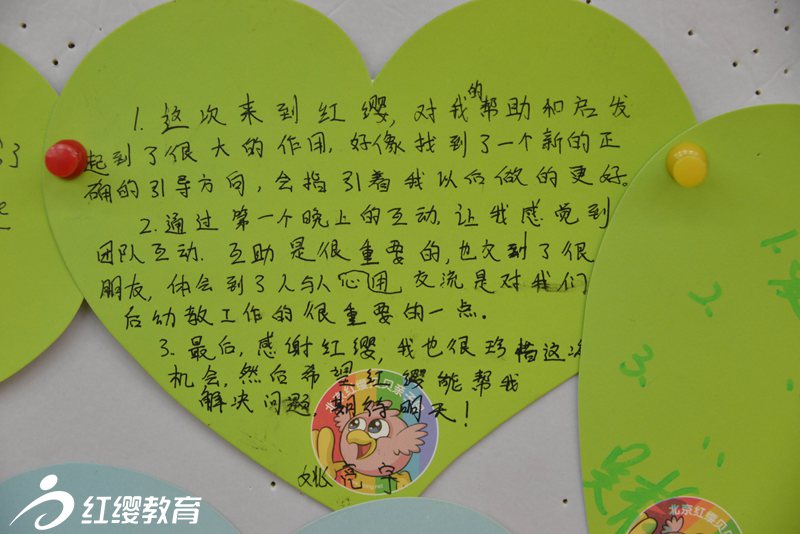 1. 这次来到红缨,对我的帮助和启发
起到了很大的作用,好像找到了一个新的正
确的引导方向,会指引着我以后做的更好。
2.通过第一个晚上的互动,让我感觉到
团队互动.互助是很重要的,也交到了很
朋友,体会到了人与人心用交流是对我们
后幼教工作的很重要的一点。
3. 最后,感谢红缨,我也很珍惜这次
机会,然后希望红缨能帮我
解决问题.期待明天!
姚亮
北京红缨贝
1.
2.
3.
吴
北京红缨贝
红缨教育